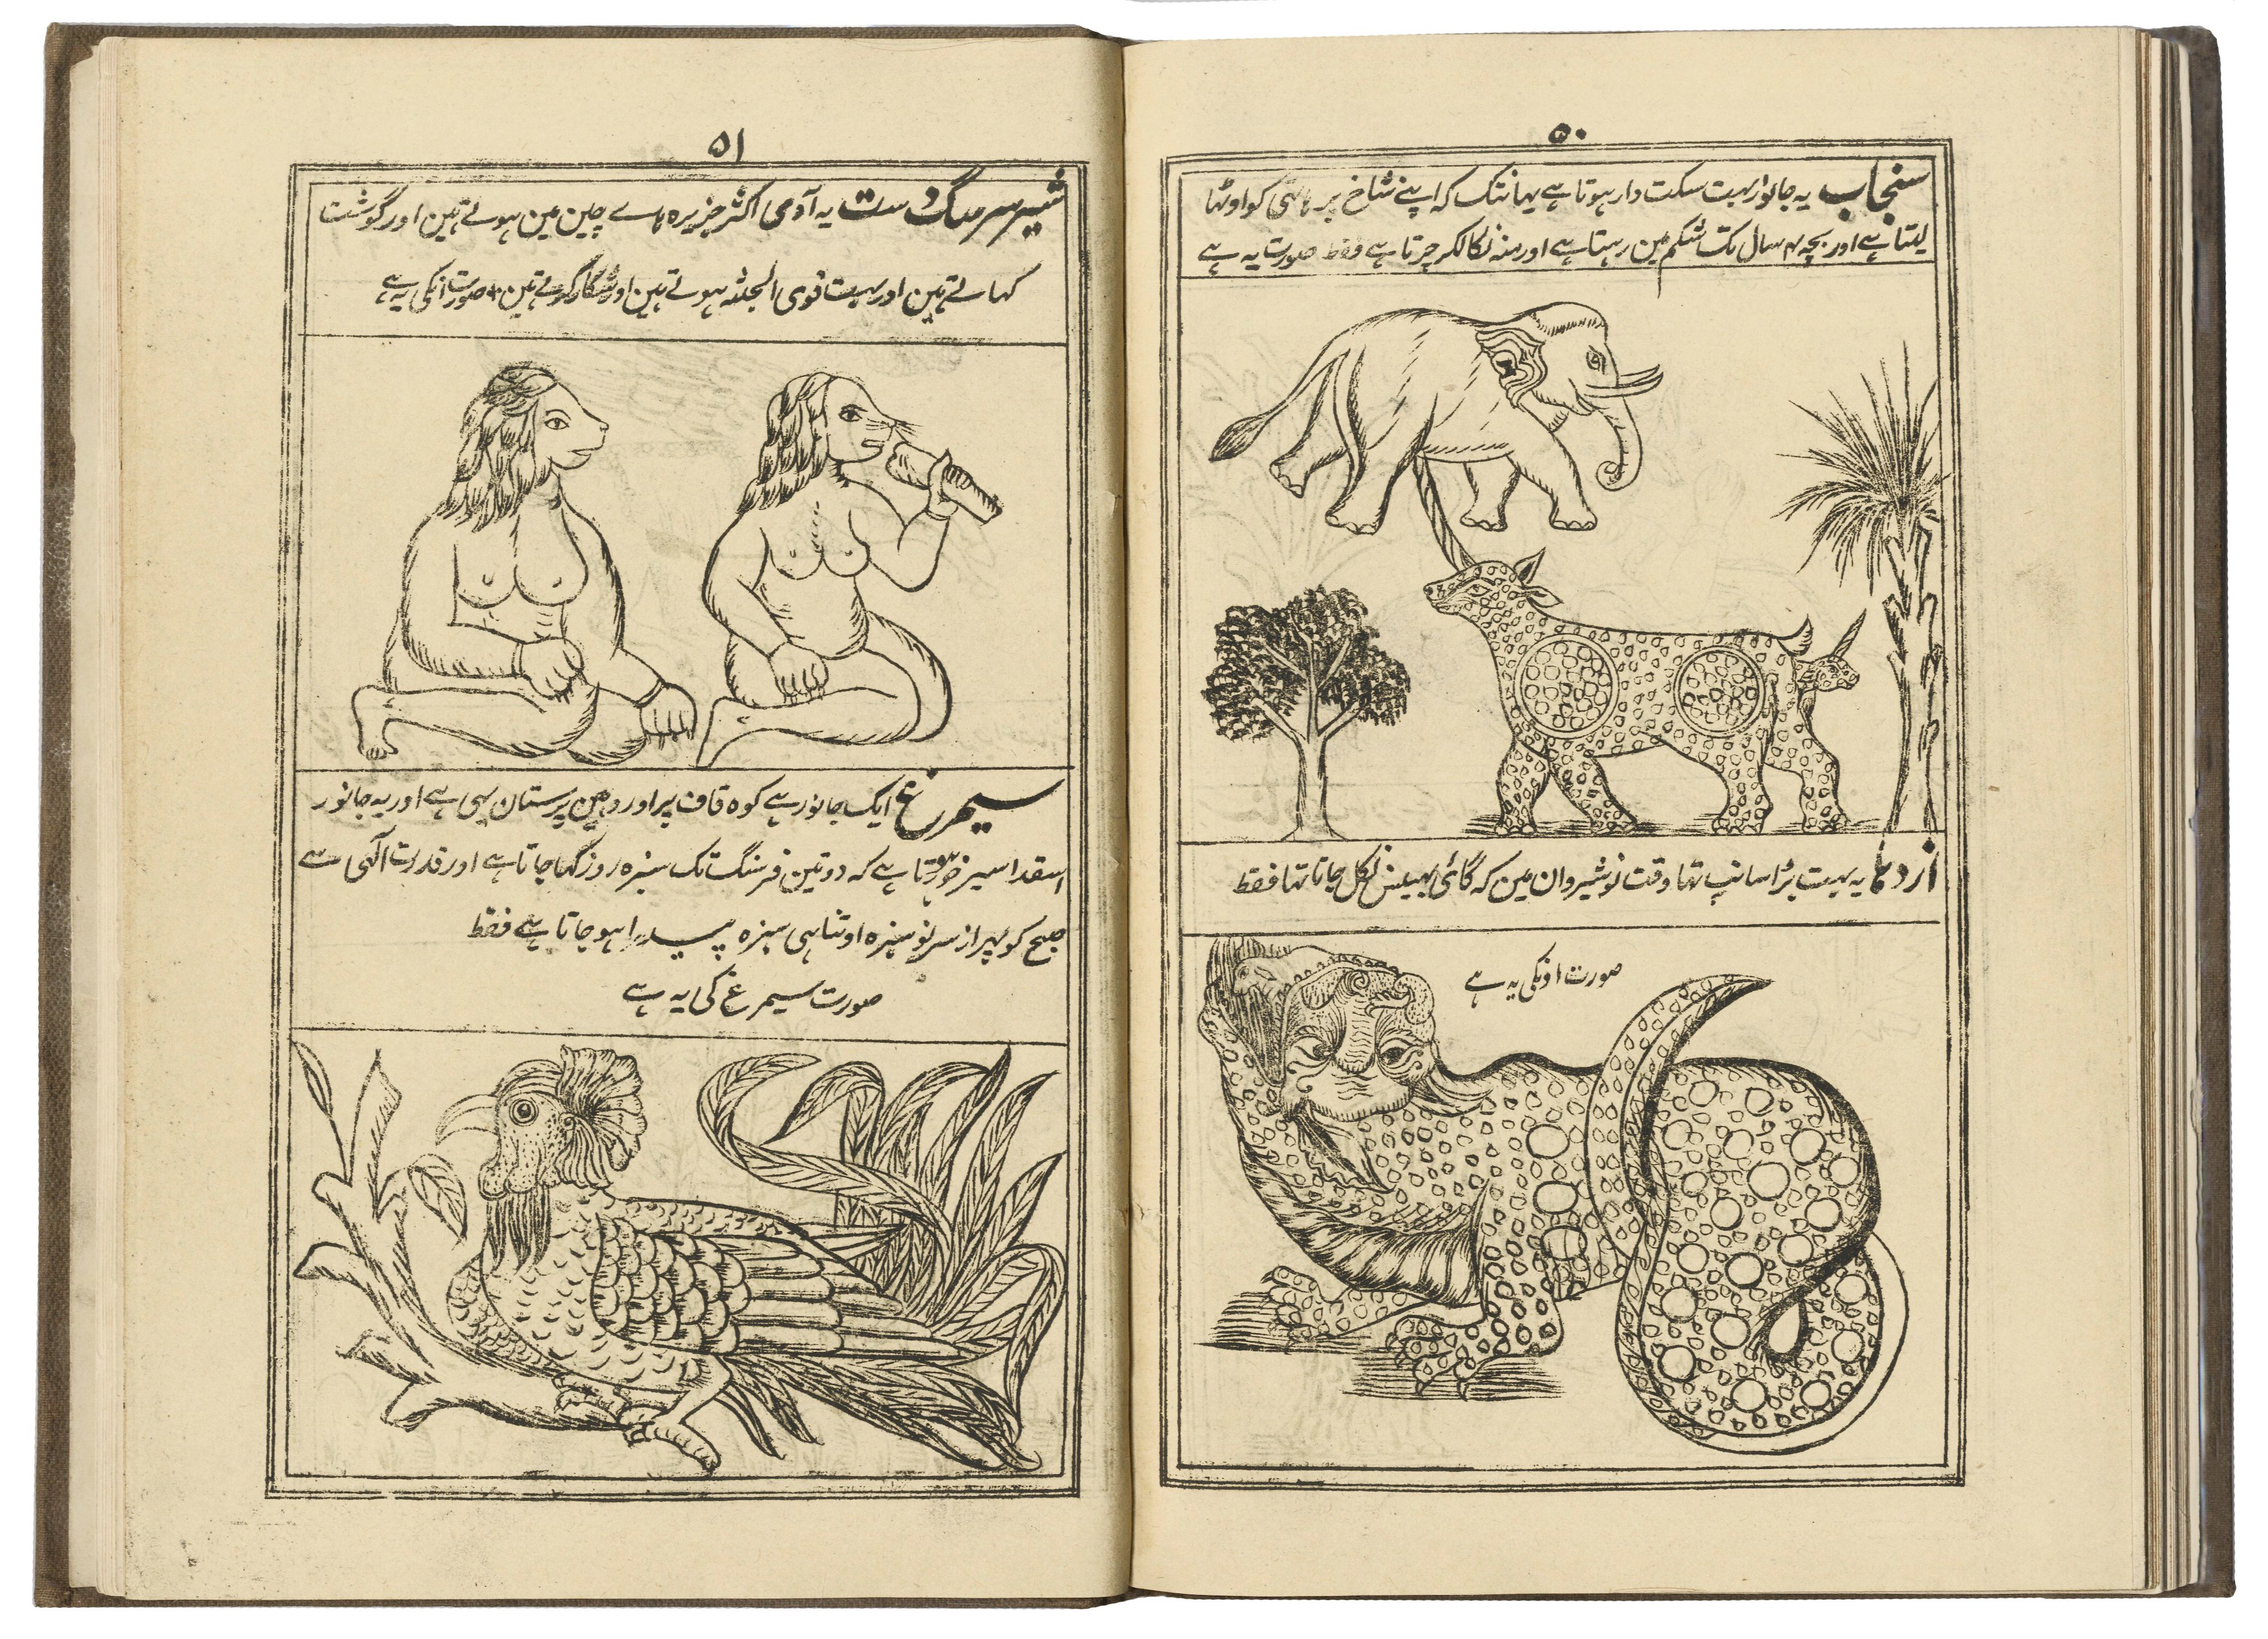 ۵۰
سنجاب یہ جانور بہت سکت دار ہوتا ہے یہانتک کہ اپنے شاخ پر ہاتی کو اوٹھا
لیتا ہے اور بچہ ۴ سال تک شکم مین رہتا ہے اور منہ نکالکر چرتا ہے فقط صورت یہ ہے
اژدہا یہ بہت بڑا سانپ تہا وقت نوشیروان مین کہ گائی بھینس نگل جاتا تہا فقط
صورت اونکی یہ ہے
۵۱
شیر سر سگ دست یہ آدمی اکثر جزیرہ ہاے چین مین ہوتے ہین اور گوشت
کہاتے ہین اور بہت قوی الجثہ ہوتے ہین اور شکار کرتے ہین صورت انکی یہ ہے
سیمرغ ایک جانور ہے کوہ قاف پر اور وہین پرستان بہی ہے اور یہ جانور
اسقدر سبز خور ہوتا ہے کہ دو تین فرسنگ تک سبزہ روز کہا جاتا ہے اور قدرت الٓہی سے
صبح کو پہر از سر نو سبزہ اوتنا ہی سبزہ پیدا ہو جاتا ہے فقط
صورت سیمرغ کی یہ ہے